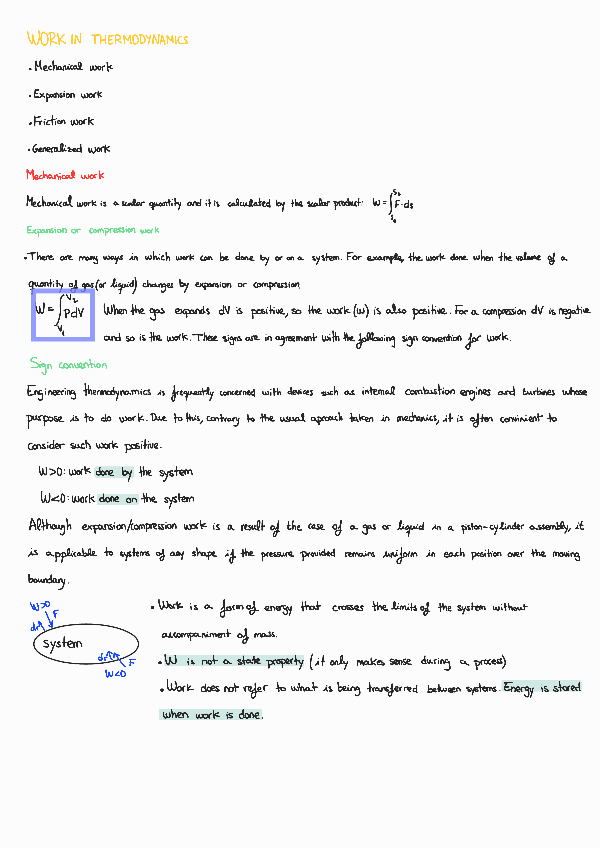 WORK IN THERMODYNAMICS
• Mechanical work
• Expansion work
• Friction work
• Generalized work
Mechanical work
Mechanical work is a scalar quantity and it is calculated by the scalar product: W = ∫ F·ds
Expansion or compression work
• There are many ways in which work can be done by or on a system. For example, the work done when the volume of a
quantity of gas (or liquid) changes by expansion or compression
W = ∫ PdV V₂ V₁
When the gas expands dV is positive, so the work (W) is also positive. For a compression dV is negative
and so is the work. These signs are in agreement with the following sign convention for work.
Sign convention
Engineering thermodynamics is frequently concerned with devices such as internal combustion engines and turbines whose
purpose is to do work. Due to this, contrary to the usual aproach taken in mechanics, it is often convinient to
consider such work positive.
W>0: work done by the system
W<0: work done on the system
Although expansion/compression work is a result of the case of a gas or liquid in a piston-cylinder assembly, it
is applicable to systems of any shape if the pressure provided remains uniform in each position over the moving
boundary.
W>0
F
dr
system
dr
F
W<0
• Work is a form of energy that crosses the limits of the system without
accompaniment of mass.
• W is not a state property (it only makes sense during a process)
• Work does not refer to what is being transferred between systems. Energy is stored
when work is done.